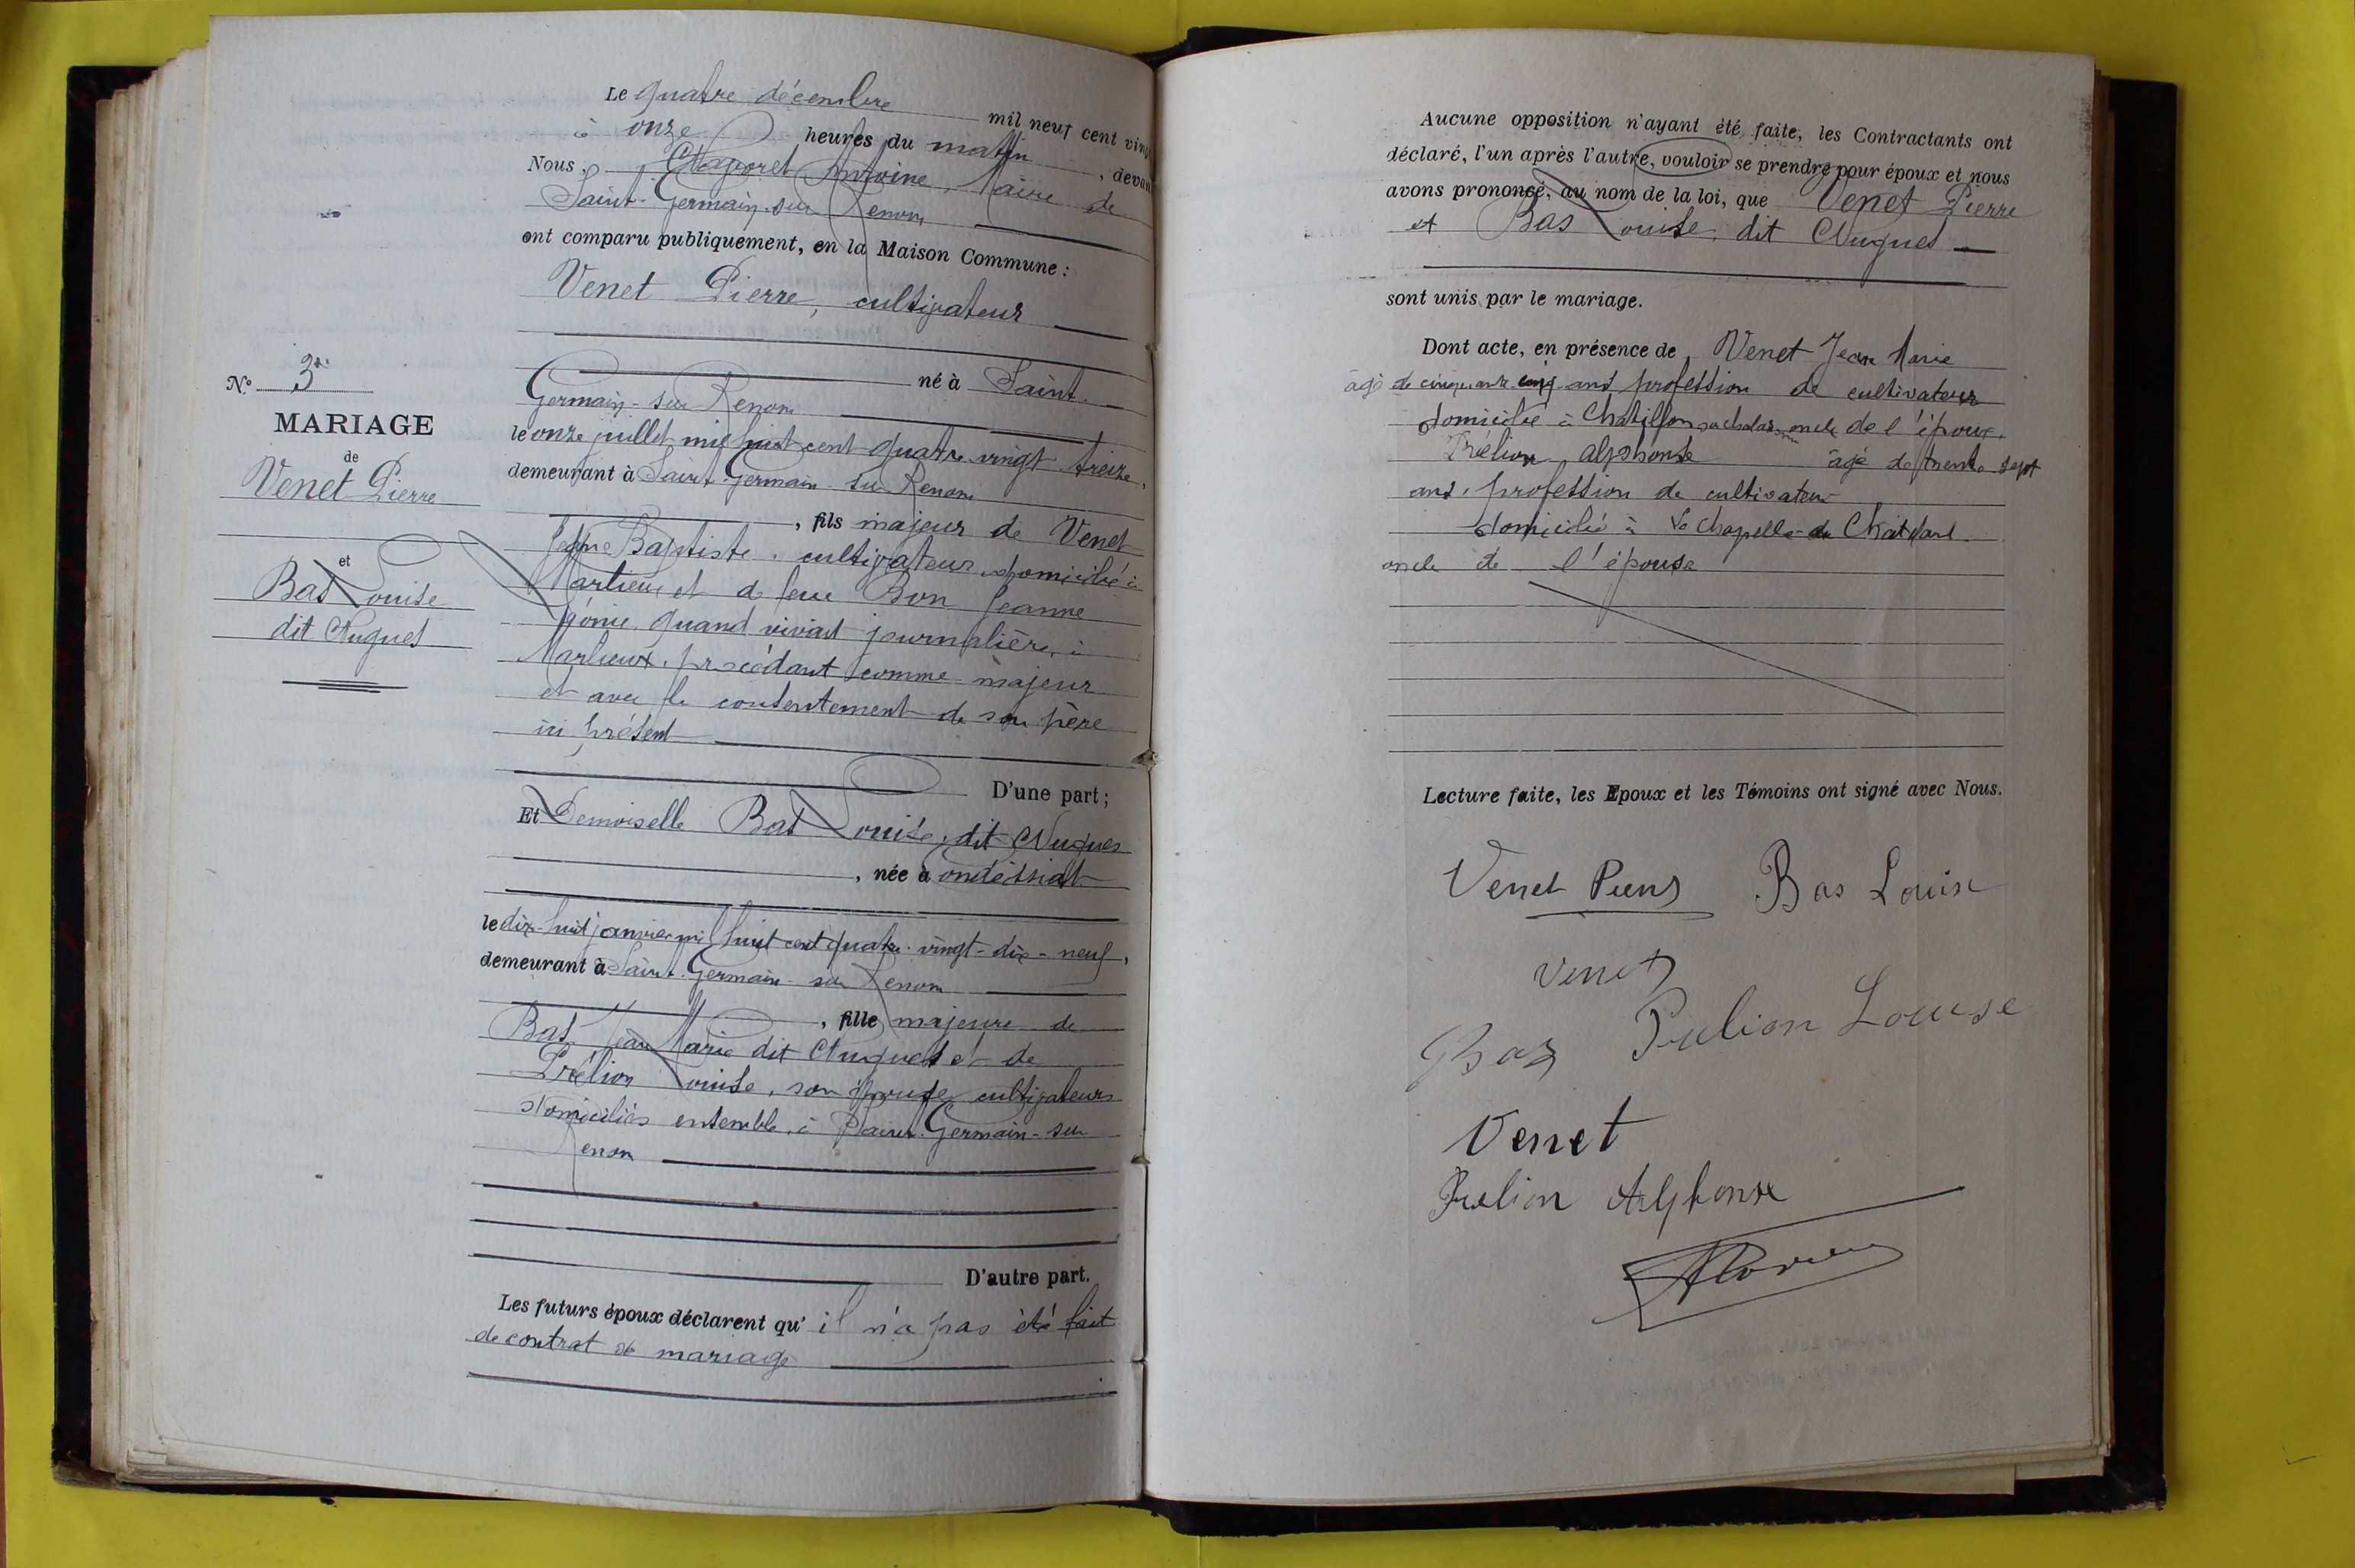 Le quatre décembre mil neuf cent ving
à onze heures du matin, devan
Nous, Antoine, Maire de
Saint-Germain-sur Renom
ont comparu publiquement, en la Maison Commune :
Venet Pierre, cultivateur
né à Saint-
Germain-sur Renom
le onze juillet mil huit cent quatre-vingt treize,
demeurant à Saint-Germain-sur Renom
, fils majeur de Venet
Jean Baptiste, cultivateur domicilié à
Marlieux et de feue Bon Jeanne
quand vivait journalière, à
Marlieux, procédant comme majeur
et avec le consentement de son père
ici présent
D'une part ;
Et Demoiselle Bas Louise, dit Nugues
, née à Condeissiat
le dix-huit janvier mil huit cent quatre-vingt-dix-neuf,
demeurant à Saint-Germain-sur Renom
, fille majeure de
Bas Jean Marie dit Nugues et de
Prélion Louise, son épouse, cultivateurs
domiciliés ensemble, à Saint-Germain-sur
Renom
D'autre part.
Les futurs époux déclarent qu'il n'a pas été fait
de contrat de mariage
No 3
MARIAGE
de
Venet Pierre
et
Bas Louise
dit Nugues
Aucune opposition n'ayant été faite, les Contractants ont
déclaré, l'un après l'autre, vouloir se prendre pour époux et nous
avons prononcé, au nom de la loi, que Venet Pierre
et Bas Louise, dit Nugues
sont unis par le mariage.
Dont acte, en présence de Venet Jean Marie
âgé de cinquante cinq ans profession de cultivateur
domicilié à Châtillon oncle de l'époux.
Prélion Alphonse âgé de trente sept
ans, profession de cultivateur
domicilié à La Chapelle-du-Chatelard.
oncle de l'épouse
Lecture faite, les Epoux et les Témoins ont signé avec Nous.
Venet Pierre Bas Louise
Venet
Prelion Louise
Bas
Venet
Prelion Alphonse